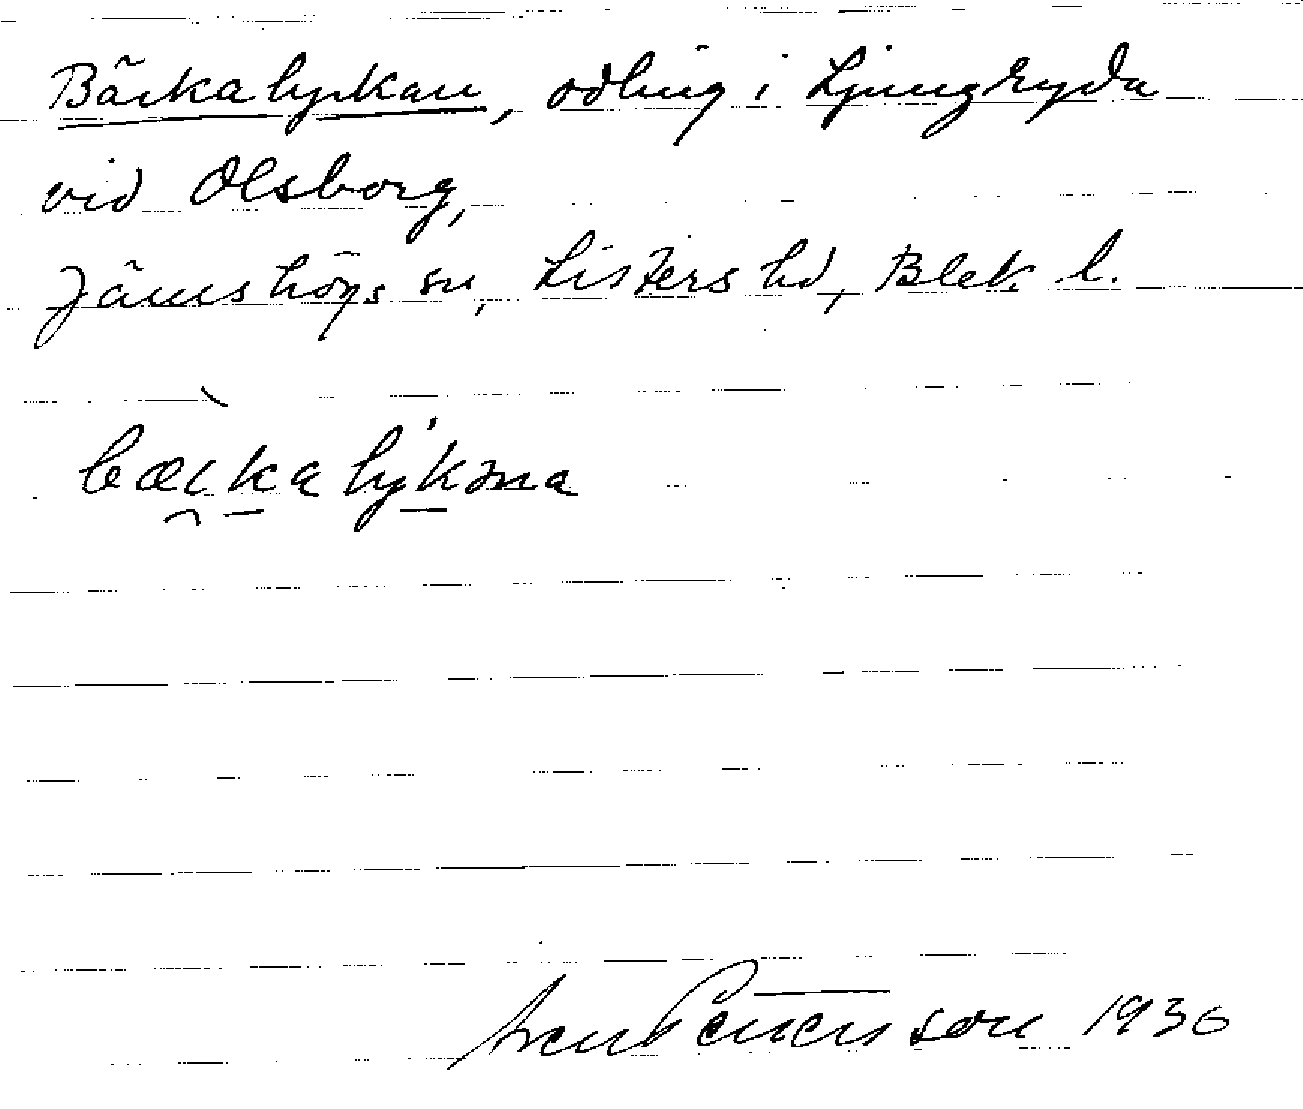 Bäckalyckan, odling i Ljungryda
vid Olsborg,
Jämshögs sn, Listers hd, Blek. l.
Sven Benson 1936